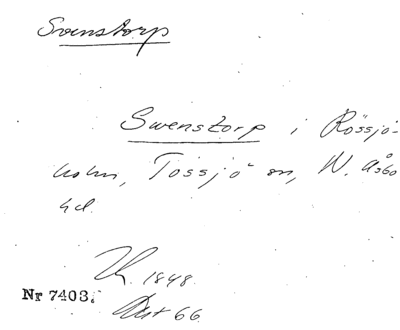 Svenstorp
Swenstorp i Rössjö-
holm, Tossjö sn, N. Åsbo
hd.
1848.
Nr 7403.
66